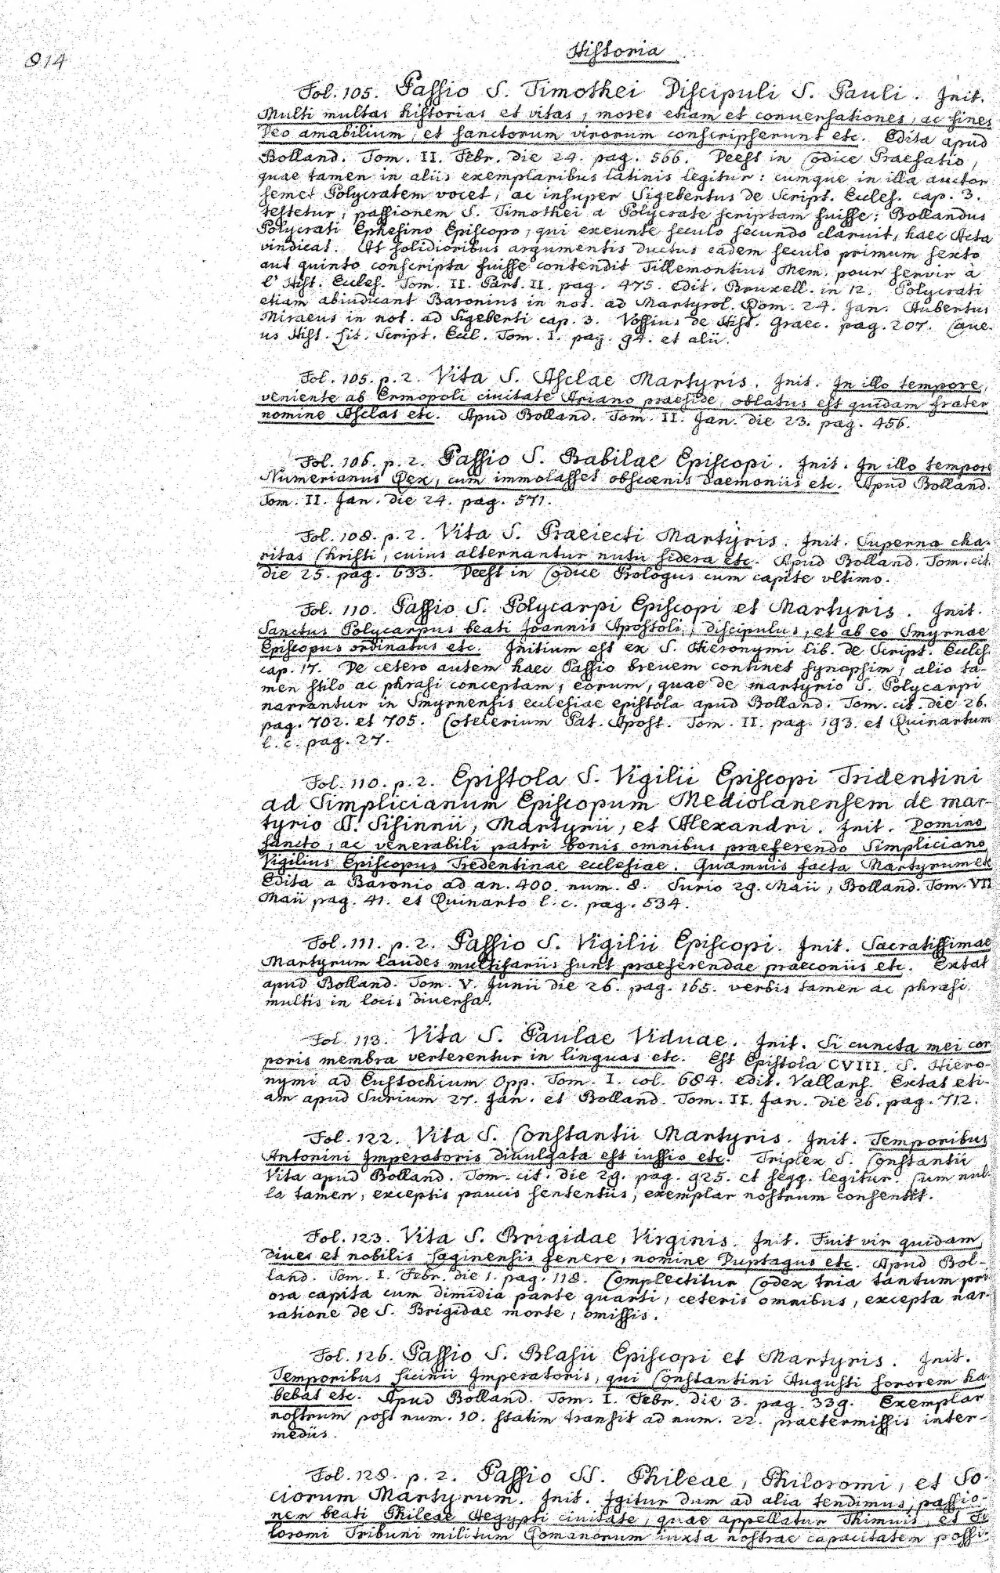 Historia
914
Fol. 105. Passio S. Timothei Discipuli S. Pauli. Init.
Multi multas historias et vitas, mores etiam et conuersationes, ac fines
Deo amabilium, et sanctorum virorum conscripserunt etc. Edita apud
Bolland. Tom. II. Febr. die 24. pag. 566. Deest in Codice Praefatio,
quae tamen in aliis exemplaribus latinis legitur: cumque in illa auctor
semet Polycratem vocet, ac insuper Sigebertus de Script. Eccles. cap. 3.
testetur, passionem S. Timothei a Polycrate scriptam fuisse: Bollandus
Polycrati Ephesino Episcopo, qui exeunte seculo secundo claruit, haec Acta
vindicat. At solidioribus argumentis ductus eadem seculo primum sexto
aut quinto conscripta fuisse contendit Tillemontius Mem. pour servir à
l'Hist. Eccles. Tom. II. Part. II. pag. 475. edit. Bruxell. in 12. Polycrati
etiam abiudicant Baronius in not. ad Martyrol. Rom. 24. Jan. Aubertus
Miraeus in not. ad Sigeberti cap. 3. Vossius de Hist. Graec. pag. 207. Caue-
us Hist. Lit. Script. Eccl. Tom. I. pag. 94. et alii.
Fol. 105. p. 2. Vita S. Asclae Martyris. Init. In illo tempore,
veniente ab Ermopoli ciuitate Ariano praeside, oblatus est quidam frater
nomine Asclas etc. Apud Bolland. Tom. II. Jan. die 23. pag. 456.
Fol. 106. p. 2. Passio S. Babilae Episcopi. Init. In illo tempore
Numerianus Rex, cum immolasset obscoenis daemoniis etc. Apud Bolland.
Tom. II. Jan. die 24. pag. 571.
Fol. 108. p. 2. Vita S. Praeiecti Martyris. Init. Superna cha-
ritas Christi, cuius alternantur nutu sidera etc. Apud Bolland. Tom. cit.
die 25. pag. 633. Deest in Codice Prologus cum capite vltimo.
Fol. 110. Passio S. Polycarpi Episcopi et Martyris. Init.
Sanctus Polycarpus beati Joannis Apostoli, discipulus, et ab eo Smyrnae
Episcopus ordinatus etc. Initium est ex S. Hieronymi lib. de Script. Eccles.
cap. 17. De cetero autem haec Passio breuem continet synopsim, alio ta-
men stilo ac phrasi conceptam, eorum, quae de martyrio S. Polycarpi
narrantur in Smyrnensis ecclesiae epistola apud Bolland. Tom. cit. die 26.
pag. 702. et 705. Cotelerium Pat. Apost. Tom. II. pag. 193. et Ruinartum
l. c. pag. 27.
Fol. 110. p. 2. Epistola S. Vigilii Episcopi Tridentini
ad Simplicianum Episcopum Mediolanensem de mar-
tyrio SS. Sisinnii, Martyrii, et Alexandri. Init. Domino
sancto, ac venerabili patri bonis omnibus praeferendo Simpliciano
Vigilius Episcopus Tredentinae ecclesiae. Quamuis facta Martyrum etc
Edita a Baronio ad an. 400. num. 8. Surio 29. Maii, Bolland. Tom. VII
Maii pag. 41. et Ruinarto l. c. pag. 534.
Fol. 111. p. 2. Passio S. Vigilii Episcopi. Init. Sacratissimae
Martyrum laudes multifariis sunt praeferendae praeconiis etc. Extat
apud Bolland. Tom. V. Junii die 26. pag. 165. verbis tamen ac phrasi
multis in locis diuersa.
Fol. 113. Vita S. Paulae Viduae. Init. Si cuncta mei cor
poris membra verterentur in linguas etc. Est Epistola CVIII. S. Hiero-
nymi ad Eustochium Opp. Tom. I. col. 684. edit. Vallars. Extat eti-
am apud Surium 27. Jan. et Bolland. Tom. II. Jan. die 26. pag. 712.
Fol. 122. Vita S. Constantii Martyris. Init. Temporibus
Antonini Imperatoris diuulgata est iussio etc. Triplex S. Constantii
Vita apud Bolland. Tom. cit. die 29. pag. 925. et seqq. legitur. Cum nul-
la tamen, exceptis paucis sententiis, exemplar nostrum consentit.
Fol. 123. Vita S. Brigidae Virginis. Init. Fuit vir quidam
diues et nobilis Laginensis genere, nomine Duptagus etc. Apud Bol-
land. Tom. I. Febr. die 1. pag. 118. Complectitur Codex tria tantum pri-
ora capita cum dimidia parte quarti, ceteris omnibus, excepta nar-
ratione de S. Brigidae morte, omissis.
Fol. 126. Passio S. Blasii Episcopi et Martyris. Init.
Temporibus Licinii Imperatoris, qui Constantini Augusti sororem ha
bebat etc. Apud Bolland. Tom. I. Febr. die 3. pag. 339. Exemplar
nostrum post num. 10. statim transit ad num. 22. praetermissis inter-
mediis.
Fol. 128. p. 2. Passio SS. Phileae, Philoromi, et So-
ciorum Martyrum. Init. Igitur dum ad alia tendimus, passio-
nem beati Phileae Aegypti ciuitate, quae appellatur Thimuis, et Fi
loromi Tribuni militum Romanorum iuxta nostrae capacitatem possi-